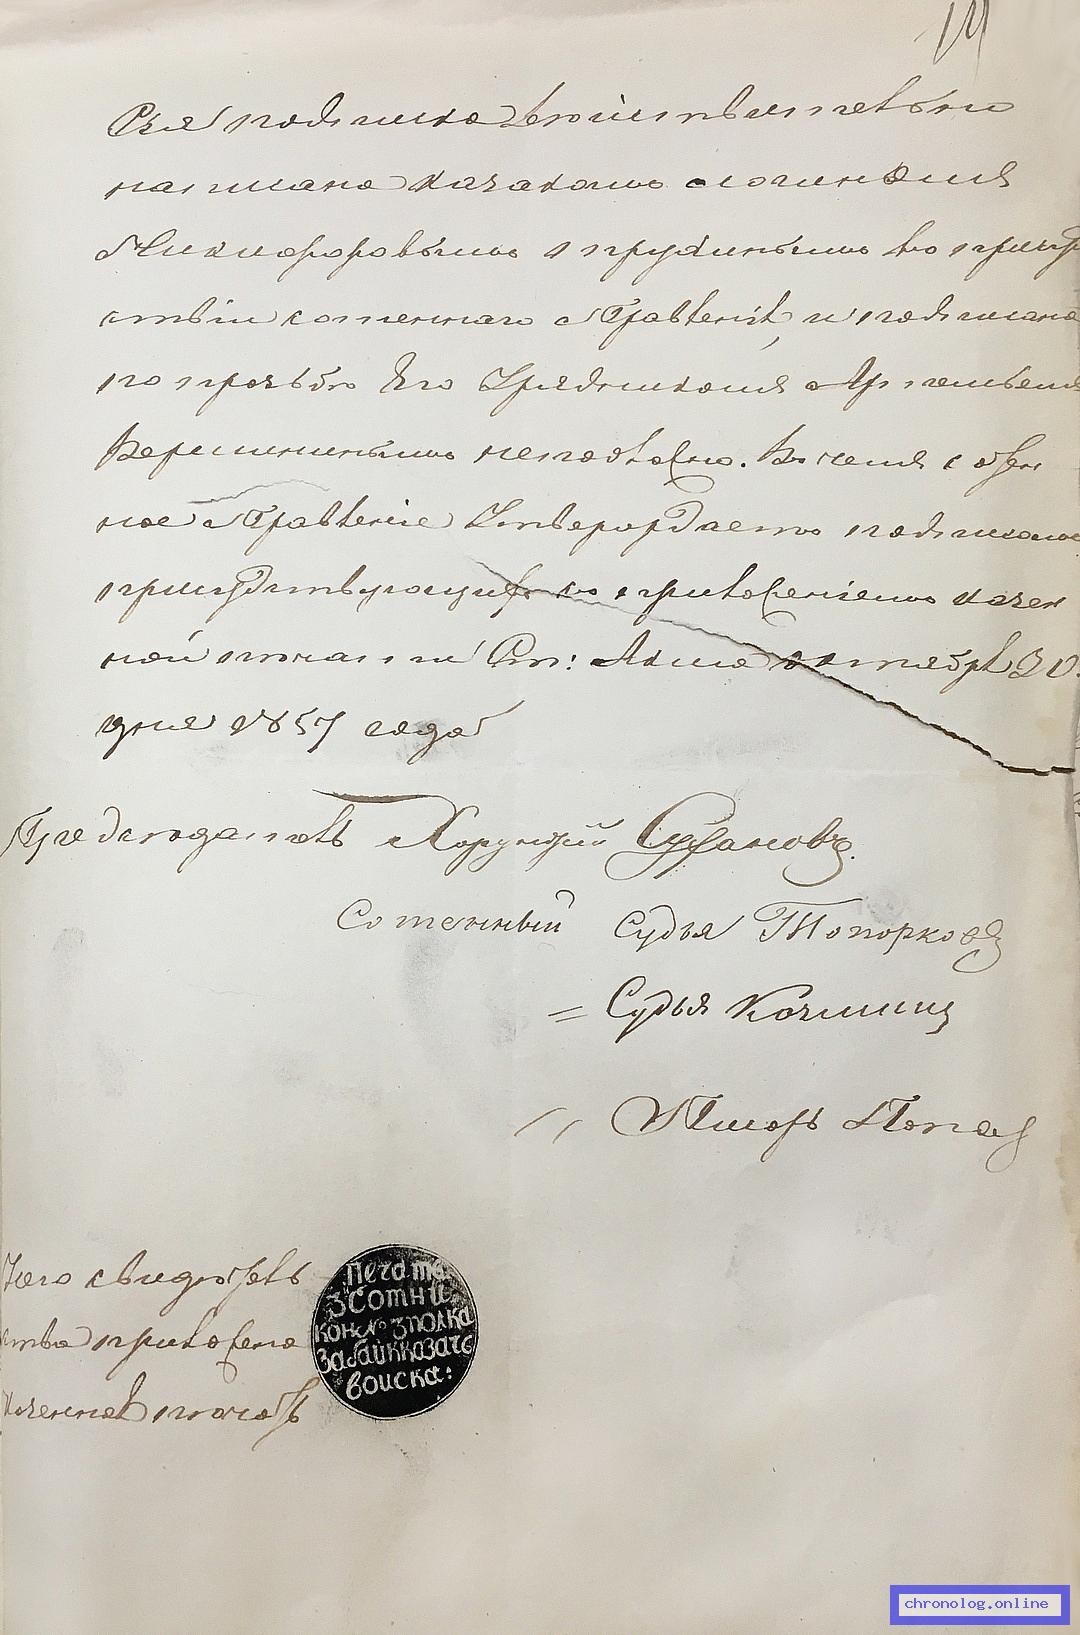 Сія подписка действительно
написана казакомъ Логиномъ
Никифоровымъ Пругинымъ въ присут
ствіи сотеннаго Правленія, и подписана
по прозьбѣ Его Урядникомъ
Вершининымъ неподложно. Въ чемъ сотен
ное Правленіе Утверждаетъ подписомъ
присудствующихъ съ приложеніемъ казен
ной печати Ст: Акша октября 20.
дня 1857 года
Председатель Хорунжій
Сотенный Судья Топорковъ
= Судья
Писарь Попов
Чего свидѣтель
ства приложена
казенная печать
Печать
3 Сотни
кон № 3 полка
Забайк казачь
войска:
chronolog.online